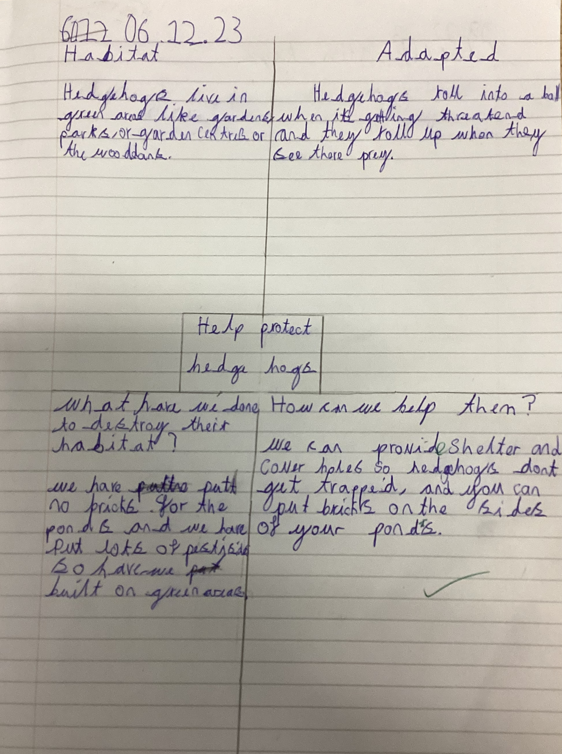 06.12.23
Habitat
Hedgehogs live in
green areas like gardens
parks or garden centres or
the wooddans.
Adapted
Hedgehogs roll into a ball
when it's getting threatend
and they roll up when they
see there prey.
Help protect
hedge hogs
what have we done
to destroy their
habitat?
we have putt
no bricks for the
ponds and we have
put lots of
so have we
built on green areas
How can we help them?
we can provide shelter and
cover holes so hedgehogs dont
get trappeid, and you can
put bricks on the sides
of your ponds.